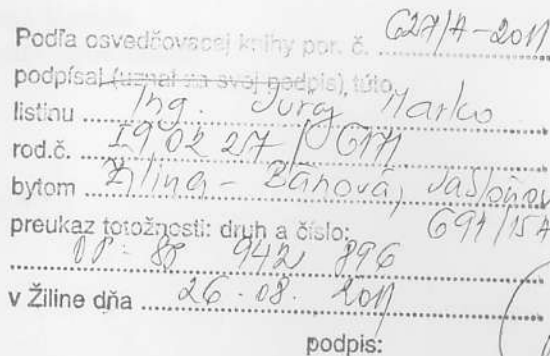 Podľa osvedčovacej knihy por. č. 627/A-2011
podpísal (uznal za svoj podpis), túto
listinu Ing. Juraj Marko
rod.č.
bytom Žilina - Bánová, Jabloňová
preukaz totožnosti: druh a číslo: 691/15A
OP: 942 896
v Žiline dňa 26.08. 2011
podpis: